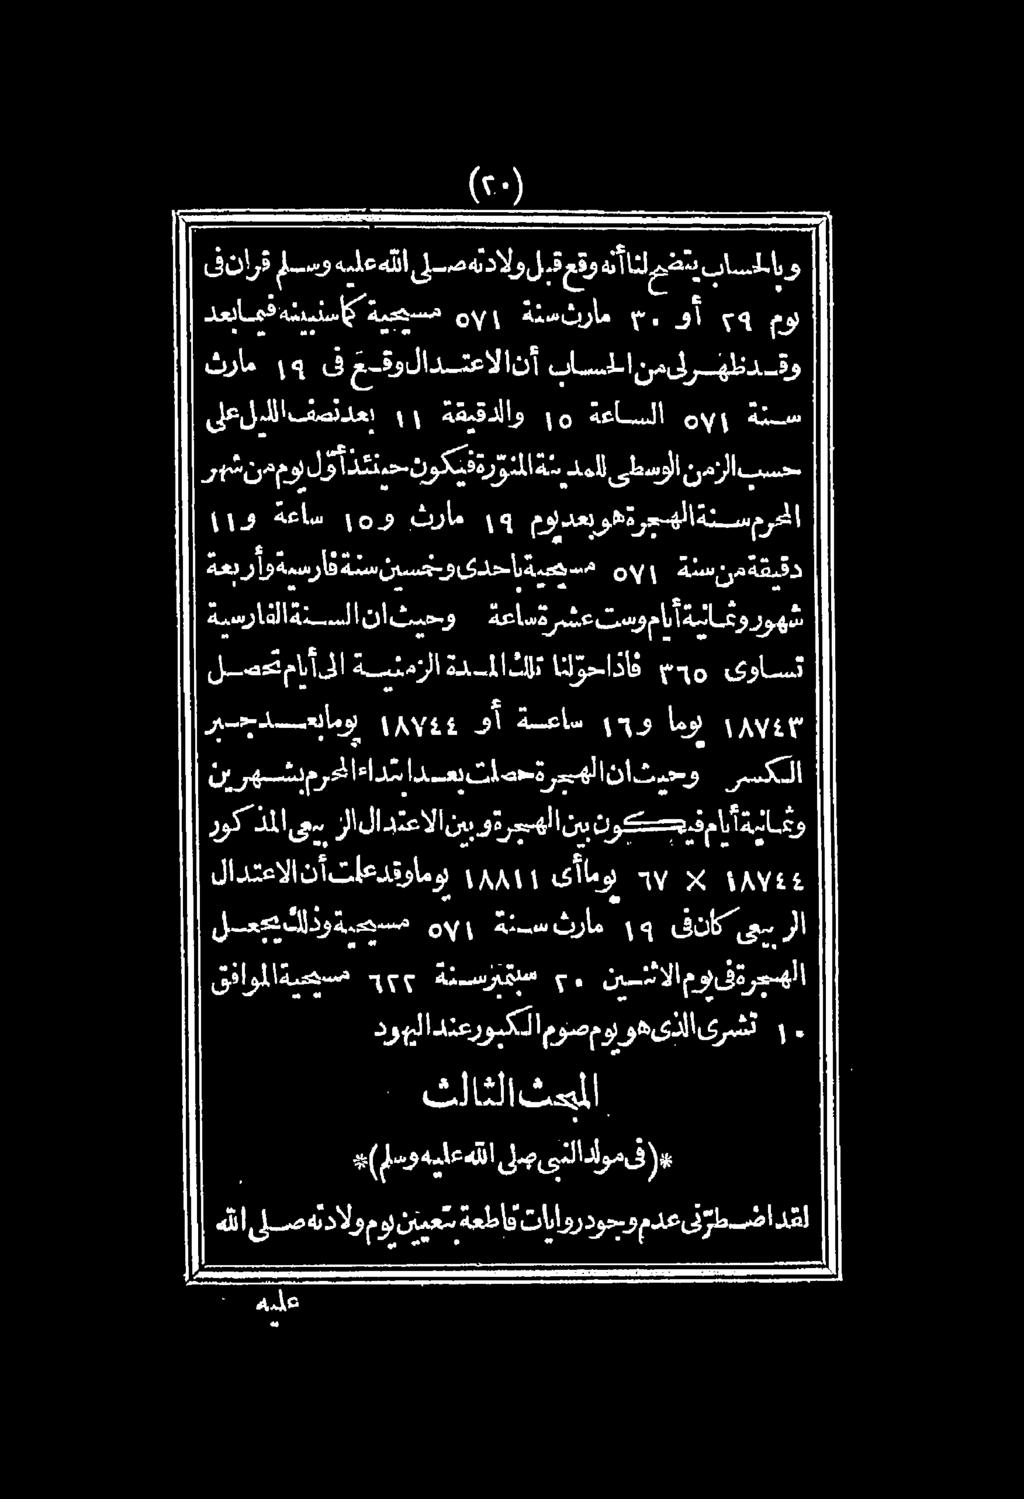 (٢٠)
وبالحساب يتضح لنا أنه وقع قبل ولادته صلى الله عليه وسلم قران فى
يوم ٢٩ أو ٣٠ مارث سنة ٥٧١ مسيحية كماسنبينه فيما بعد
وقد ظهر لى من الحساب أن الاعتدال وقع فى ١٩ مارث
سنة ٥٧١ الساعة ١٥ والدقيقة ١١ بعد نصف الليل على
حسب الزمن الوسطى للمدينة المنوّرة فيكون حينئذ أوّل يوم من شهر
المحرم سنة الهجرة هو بعد يوم ١٩ مارث و١٥ ساعة و١١
دقيقة من سنة ٥٧١ مسيحية باحدى وخمسين سنة فارسية وأربعة
شهور وثمانية أيام وست عشرة ساعة وحيث ان السنة الفارسية
تساوى ٣٦٥ فاذا حوّلنا تلك المدة الزمنية الى أيام تحصل
١٨٧٤٣ يوما و١٦ ساعة أو ١٨٧٤٤ يوما بعد جبر
الكسر وحيث ان الهجرة حصلت بعد ابتداء المحرم بشهرين
وثمانية أيام فيكون بين الهجرة وبين الاعتدال الربيعى المذكور
١٨٧٤٤ × ٦٧ يوما أى ١٨٨١١ يوما وقد علمت أن الاعتدال
الربيعى كان فى ١٩ مارث سنة ٥٧١ مسيحية وذلك يجعل
الهجرة فى يوم الاثنين ٢٠ سبتمبر سنة ٦٢٢ مسيحية الموافق
١٠ تشرى الذى هو يوم صوم الكبور عند اليهود
المبحث الثالث
*(فى مولد النبى صلى الله عليه وسلم)*
لقد اضطرّنى عدم وجود روايات قاطعة بتعيين يوم ولادته صلى الله
عليه